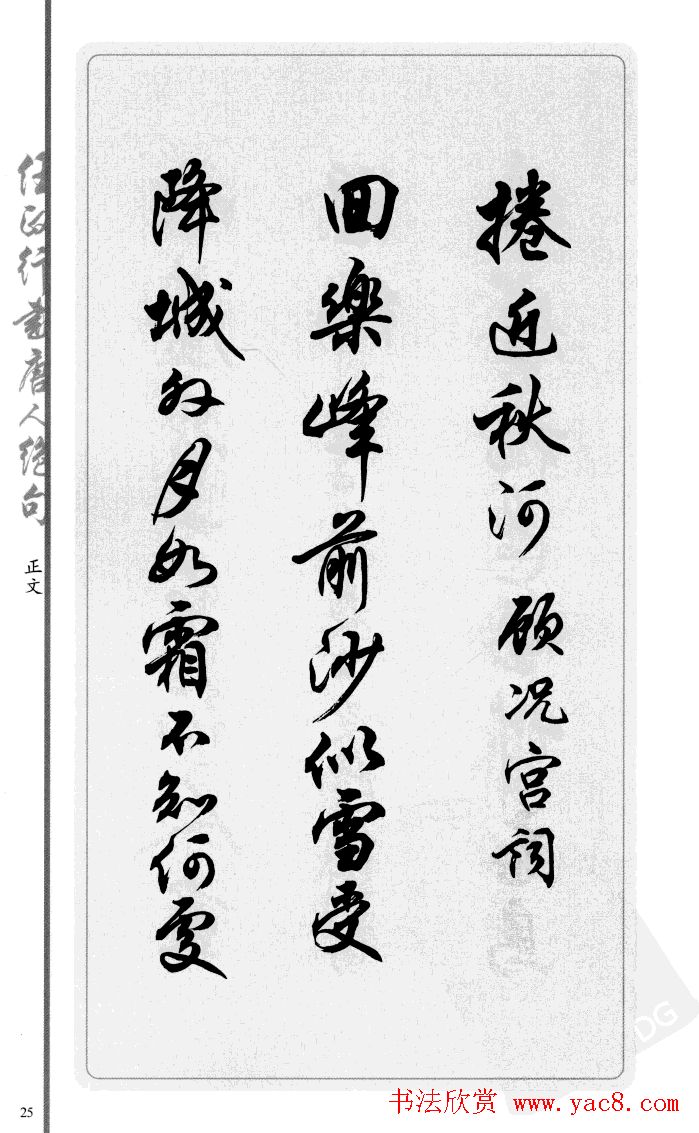 捲近秋河 顾况宫词
回樂峰前沙似雪受
降城外月如霜不知何處
任政行書唐人绝句
正文
25
书法欣赏 www.yac8.com
DG